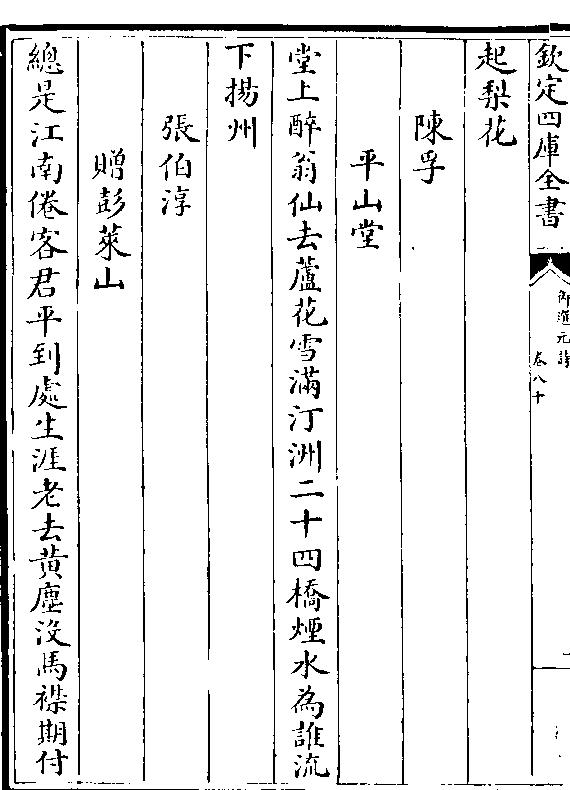 欽定四庫全書
御選元詩
卷八十
起梨花
陳孚
平山堂
堂上醉翁仙去蘆花雪滿汀洲二十四橋煙水為誰流
下揚州
張伯淳
贈彭萊山
總是江南倦客君平到處生涯老去黃塵沒馬襟期付